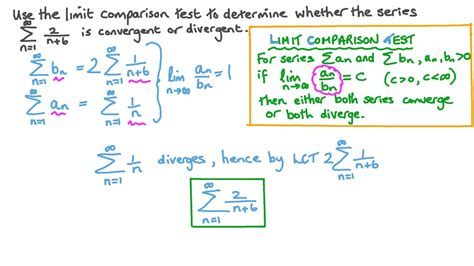 Use the limit comparison test to determine whether the series
∞ Σ n=1 2/(n+6) is convergent or divergent.
∞ Σ n=1 bn = 2 ∞ Σ n=1 1/(n+6)
∞ Σ n=1 an = ∞ Σ n=1 1/n
lim n→∞ an/bn = 1
LIMIT COMPARISON TEST
For series Σan and Σbn, an, bn>0
if lim n→∞ an/bn = C (c>0, c<∞)
then either both series converge
or both diverge.
∞ Σ n=1 1/n diverges, hence by LCT 2 ∞ Σ n=1 1/(n+6)
∞ Σ n=1 2/(n+6)